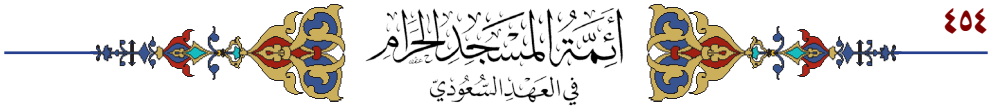 ٤٥٤
أَئِمَّةُ المَسْجِدِ الحَرَامِ
فِي العَهْدِ السُّعُودِيِّ